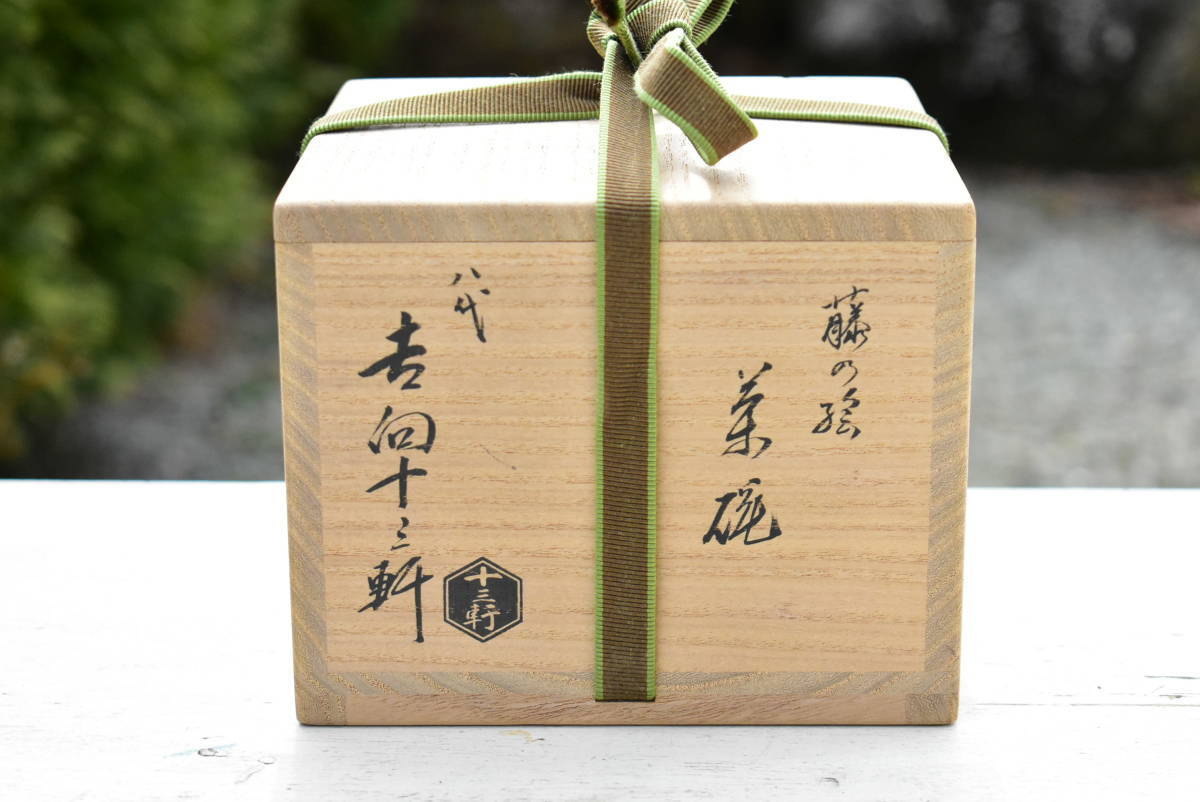 藤の絵
茶碗
八代
吉向十三軒
十三軒